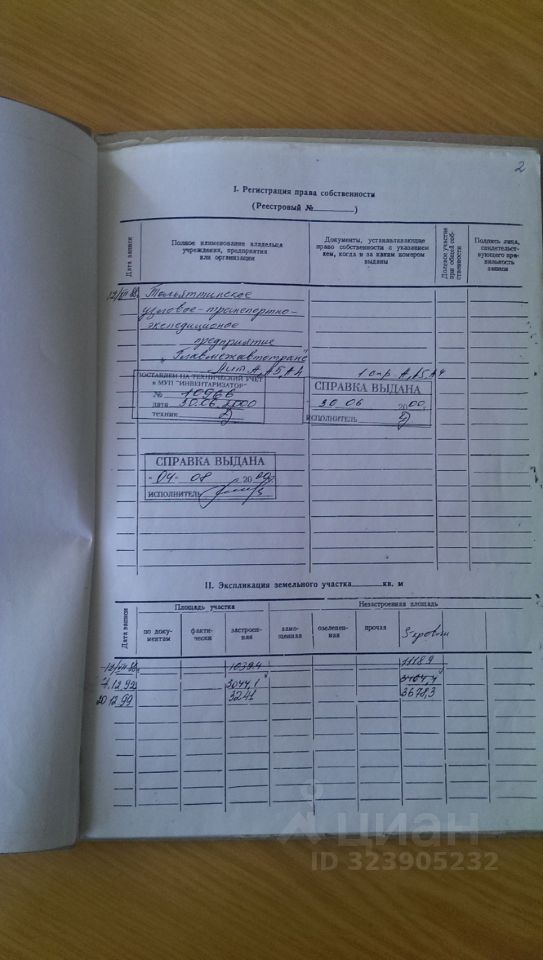 2
I. Регистрация права собственности
(Реестровый №________)
Дата записи
Полное наименование владельца учреждения, предприятия или организации
Документы, устанавливающие право собственности с указанием кем, когда и за каким номером выданы
Долевое участие при общей собственности
Подпись лица, свидетельствующего правильность записи
Тольяттинское
узловое-транспортно-
экспедиционое
предприятие
"Главмежавтотранс"
Лит. А, А5, А4
ПОСТАВЛЕН НА ТЕХНИЧЕСКИЙ УЧЕТ
в МУП "ИНВЕНТАРИЗАТОР"
№ 10966
дата 30.06.2000
техник
СПРАВКА ВЫДАНА
30 06 2000
ИСПОЛНИТЕЛЬ
СПРАВКА ВЫДАНА
04 08 20
ИСПОЛНИТЕЛЬ
II. Экспликация земельного участка________кв. м
Дата записи
Площадь участка
Незастроенная площадь
по документам
фактически
застроенная
замощенная
озелененная
прочая
1039.4
1118.9
7.12.92
3044.1
20.12.99
3241
3678,3
циан
ID 323905232